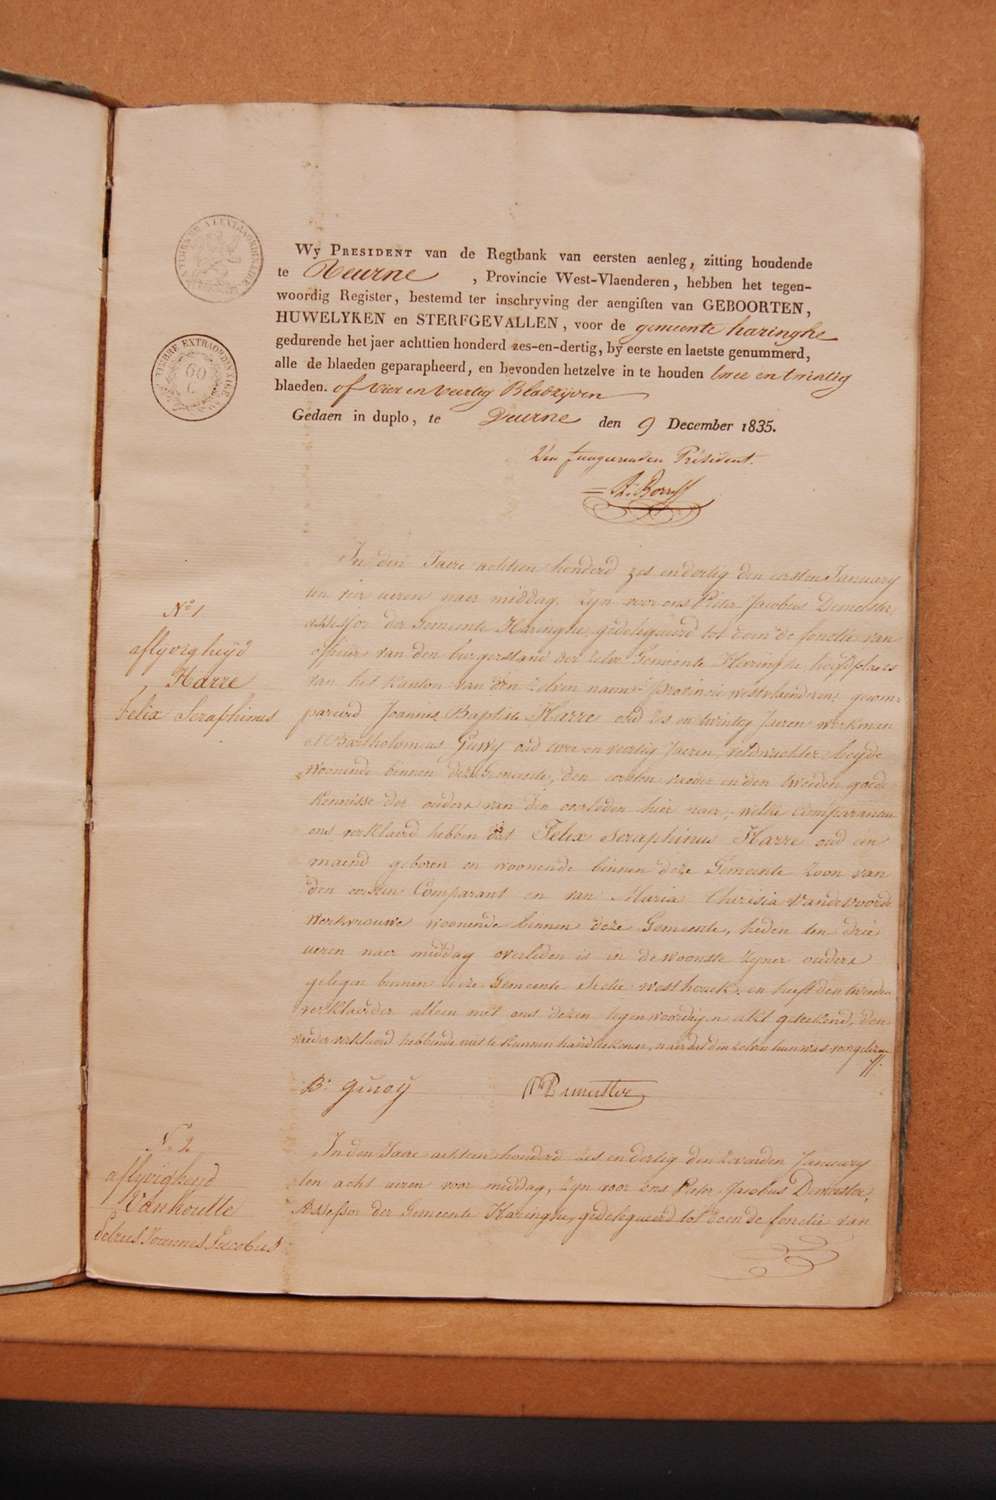 TIMBRE EXTRAORDINAIRE
60
C.
Wy President van de Regtbank van eersten aenleg, zitting houdende
te Veurne, Provincie West-Vlaenderen, hebben het tegen-
woordig Register, bestemd ter inschryving der aengiften van GEBOORTEN,
HUWELYKEN en STERFGEVALLEN, voor de gemeente haringhe
gedurende het jaer achttien honderd zes-en-dertig, by eerste en laetste genummerd,
alle de blaeden geparapheerd, en bevonden hetzelve in te houden twee en twintig
blaeden. of vier en veertig Bladzyven
Gedaen in duplo, te Veurne den 9 December 1835.
Den fungeerenden President.
No 1
aflyvigheyd
Harre
Felix Seraphinus
In den Jaere achtien honderd zes en dertig den eersten January
ten vier ueren naer middag, zyn voor ons Pieter Jacobus Demeester
assessor der Gemeente Haringhe, gedelegueerd tot doen de fonctie van
officier van den burgerstand der zelve Gemeente Haringhe hoofdplaets
van het kanton van den zelven naem, provincie westvlaenderen, gecom-
pareerd Joannes Baptiste Harre oud zes en twintig Jaeren werkman
et Bartholomeus Guwy oud twee en veertig Jaeren, veldwachter, beyde
woonende binnen deze Gemeente, den eersten vader en den tweeden goede
kennisse der ouders van den overleden hier naer, welke comparanten
ons verklaerd hebben dat Felix Seraphinus Harre oud een
maend geboren en woonende binnen deze Gemeente zoon van
den eersten Comparant en van Maria Theresia Vandevoorde
werkvrouwe woonende binnen deze Gemeente, heden ten drie
ueren naer middag overleden is in de woonste zyner ouders
gelegen binnen deze Gemeente sectie westhouck, en heeft den tweeden
verklaerder alleen met ons dezen tegenwoordigen akt geteekend, den
vader verklaerd hebbende niet te kunnen handteekenen, naer dat den zelven hun was voorgelezen
Bs guwy
PDemeester
No 2
aflyvigheyd
Vanhoutte
Petrus Joannes Jacobus
In den Jaere achtien honderd zes en dertig den January
ten acht ueren voor middag, zyn voor Ons Pieter Jacobus Demeester,
Assessor der Gemeente Haringhe, gedelegueerd tot doen de fonctie van